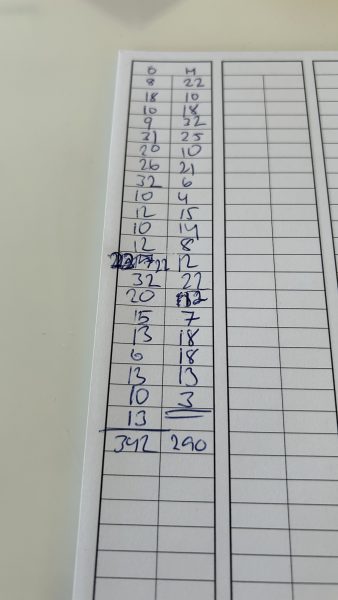 D M
8 22
18 10
10 18
9 32
31 25
20 10
26 21
32 6
10 4
12 15
10 14
12 8
22 12
32 22
20 12
15 7
13 18
6 18
13 13
10 3
13
342 290